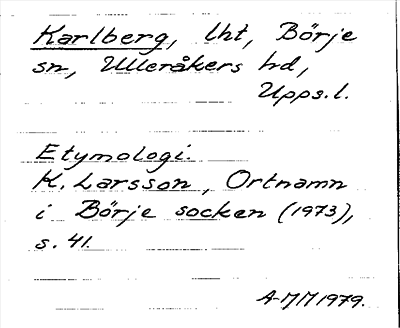 Karlberg, lht, Börje
sn, Ulleråkers hd,
Upps.l.
Etymologi.
K. Larsson, Ortnamn
i Börje socken (1973),
s. 41.
A-MM 1979.